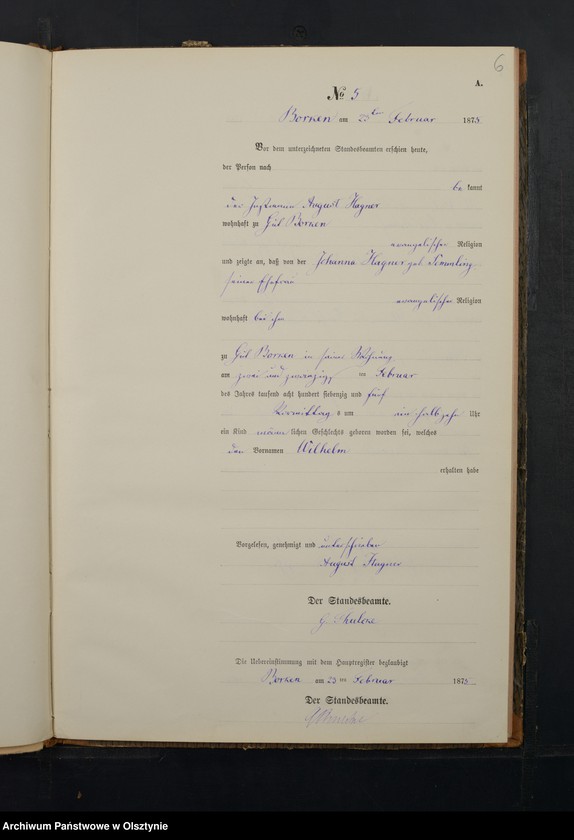 6
A.
No 5
Borken am 23ten Februar 1875
Vor dem unterzeichneten Standesbeamten erschien heute,
der Person nach
be kannt
der Instmann August Hagner
wohnhaft zu Gut Borken
evangelischer Religion
und zeigte an, daß von der Johanna Hagner geb. Simmling
seiner Ehefrau
evangelischer Religion
wohnhaft bei ihm
zu Gut Borken in seiner Wohnung
am zwei und zwanzigsten Februar
des Jahres tausend acht hundert siebenzig und fünf
Vormittag s um ein halb zehn Uhr
ein Kind männ lichen Geschlechts geboren worden sei, welches
den Vornamen Wilhelm
erhalten habe
Vorgelesen, genehmigt und unterschrieben
August Hagner
Der Standesbeamte.
Die Uebereinstimmung mit dem Hauptregister beglaubigt
Borken am 23ten Februar 1875
Der Standesbeamte.
Archiwum Państwowe w Olsztynie